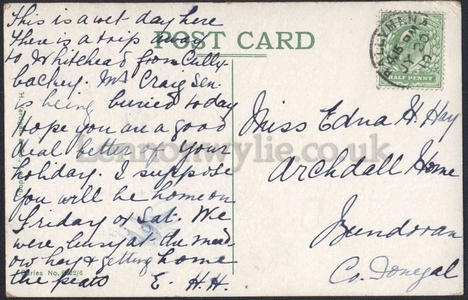 This is a wet day here
There is a trip away
to Whitehead from Cully-
backey. Mr Craig Sen.
is being buried today
Hope you are a good
deal better of your
holiday. I suppose
you will be home on
Friday or Sat. We
were busy at the mead-
ow hay & getting home
the peats E. H. H.
POST CARD
HALF PENNY
Miss Edna H. Hay
Archdall Home
Bundoran
Co. Donegal
wylie.co.uk